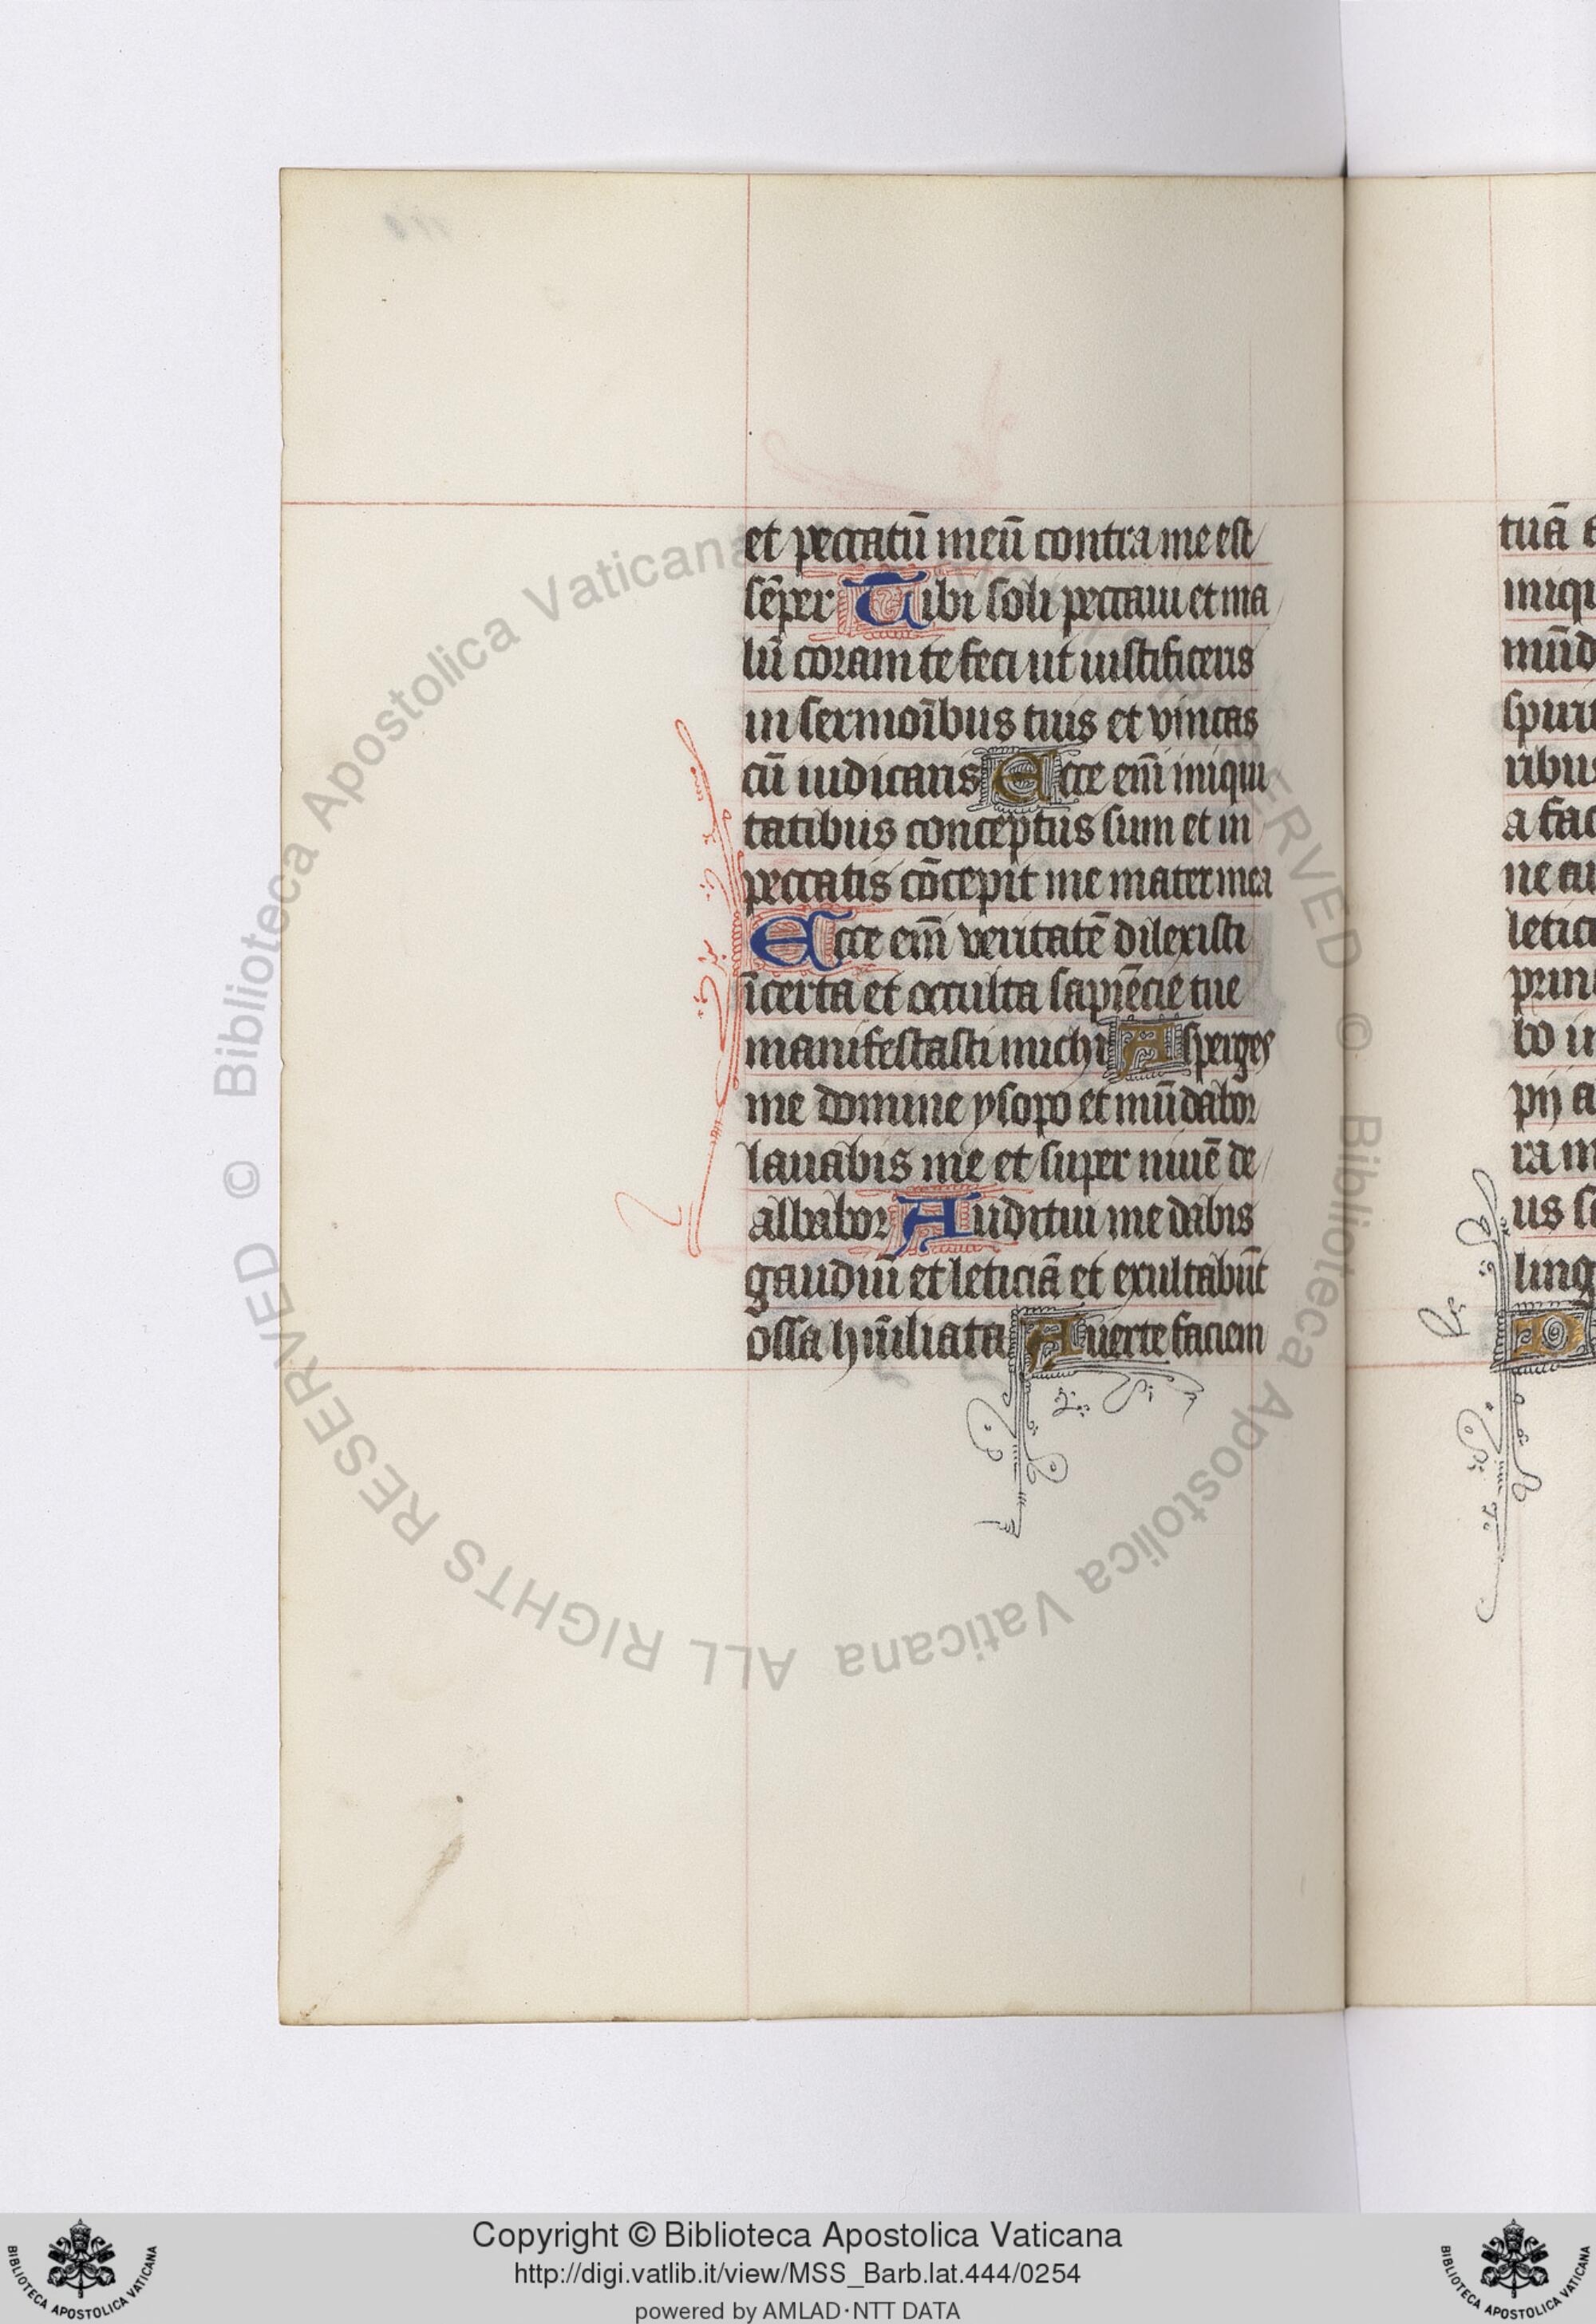 et peccatū meū contra me est
sēper Tibi soli peccaui et ma
lū coram te feci ut iustificeris
in sermoībus tuis et vincas
cū iudicaris Ecce em̄ iniqui
tatibus conceptus sum et in
peccatis cōcepit me mater mea
Ecce em̄ veritatē dilexisti
īcerta et occulta sapiēcie tue
manifestasti michi Asperges
me domine ysopo et mūdabor
lauabis me et super niuē de
albabor Auditui me dabis
gaudiū et leticiā et exultabūt
ossa hūiliata Auerte faciem
tuā a
iniqu
mūd
spiri
ribus
a fac
ne tu
letici
prin
bo in
pij a
ra m
us s
ling
© Biblioteca Apostolica Vaticana
ALL RIGHTS RESERVED
© Biblioteca Apostolica Vaticana
BIBLIOTECA APOSTOLICA VATICANA
Copyright © Biblioteca Apostolica Vaticana
http://digi.vatlib.it/view/MSS_Barb.lat.444/0254
powered by AMLAD·NTT DATA
BIBLIOTECA APOSTOLICA VATICANA